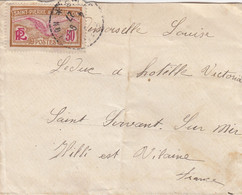 SAINT-PIERRE
POSTES
50
Mademoiselle Louise
Leduc d hotelle Victoria
Saint Servant. Sur Mer
Hilli est Vilaine
France